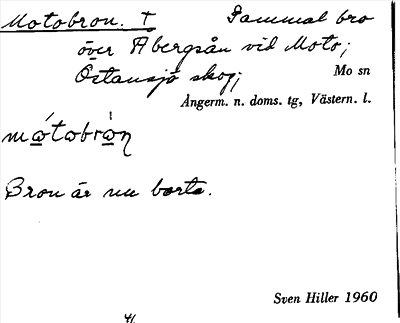 Motobron. † Gammal bro
över Åbergsån vid Moto;
Östansjö skog; Mo sn
Ångerm. n. doms. tg, Västern. l.
mo̲tobro̲n
Bron är nu borta.
Sven Hiller 1960